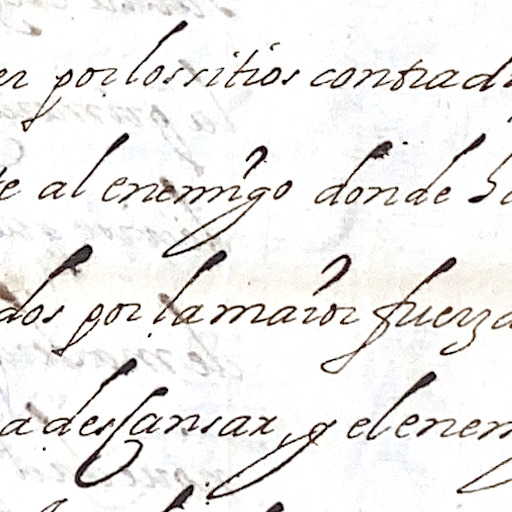 er por los sitios contrad
te al enemigo donde ha
dos por la maior fuerza
a descansar, y el enem